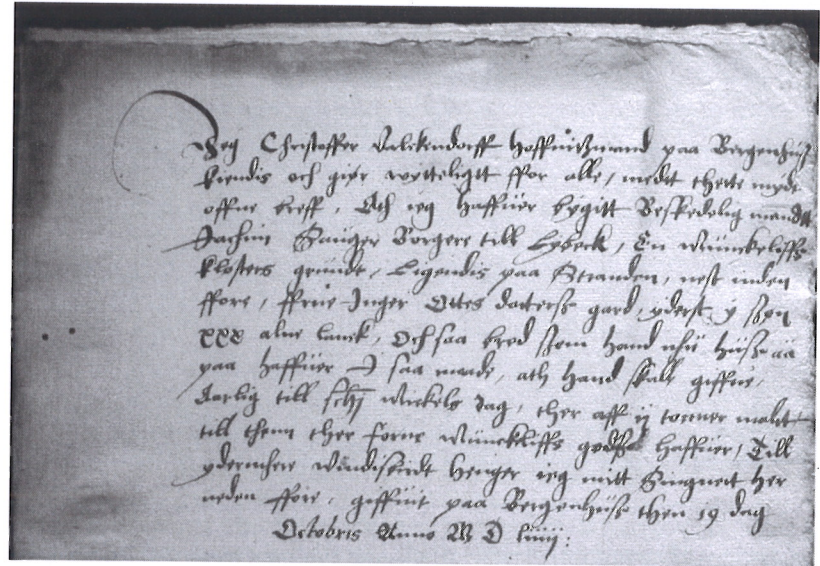 Jeg Christoffer Valckendorff Høffuitzmand paa Bergenhus
kiendis och giør witteligtt ffor alle, medt thette mijdt
offne breff, Ath ieg haffuer bygitt Beskedelig mandtt
Jachim Borgere till Lybeck, En Munckeliffs
klosters grundt, Ligendis paa Stranden, nest inden
ffore, ffrue Inger Ottes dotterss gard, yderst y siøn
xxx alne lanck, Och saa bred som hand nhu husse aa
paa haffuer J saa made, ath hand skall giffue,
Aarlig till Michels dag, ther aff ij tønner
till thenn ther forne Munckliffs godss haffuer, Till
ydermere windisbirdt henger ieg mitt Signett her
neden ffore, giffuit paa Bergenhuss then 19 dag
Octobris Anno M D liiij: